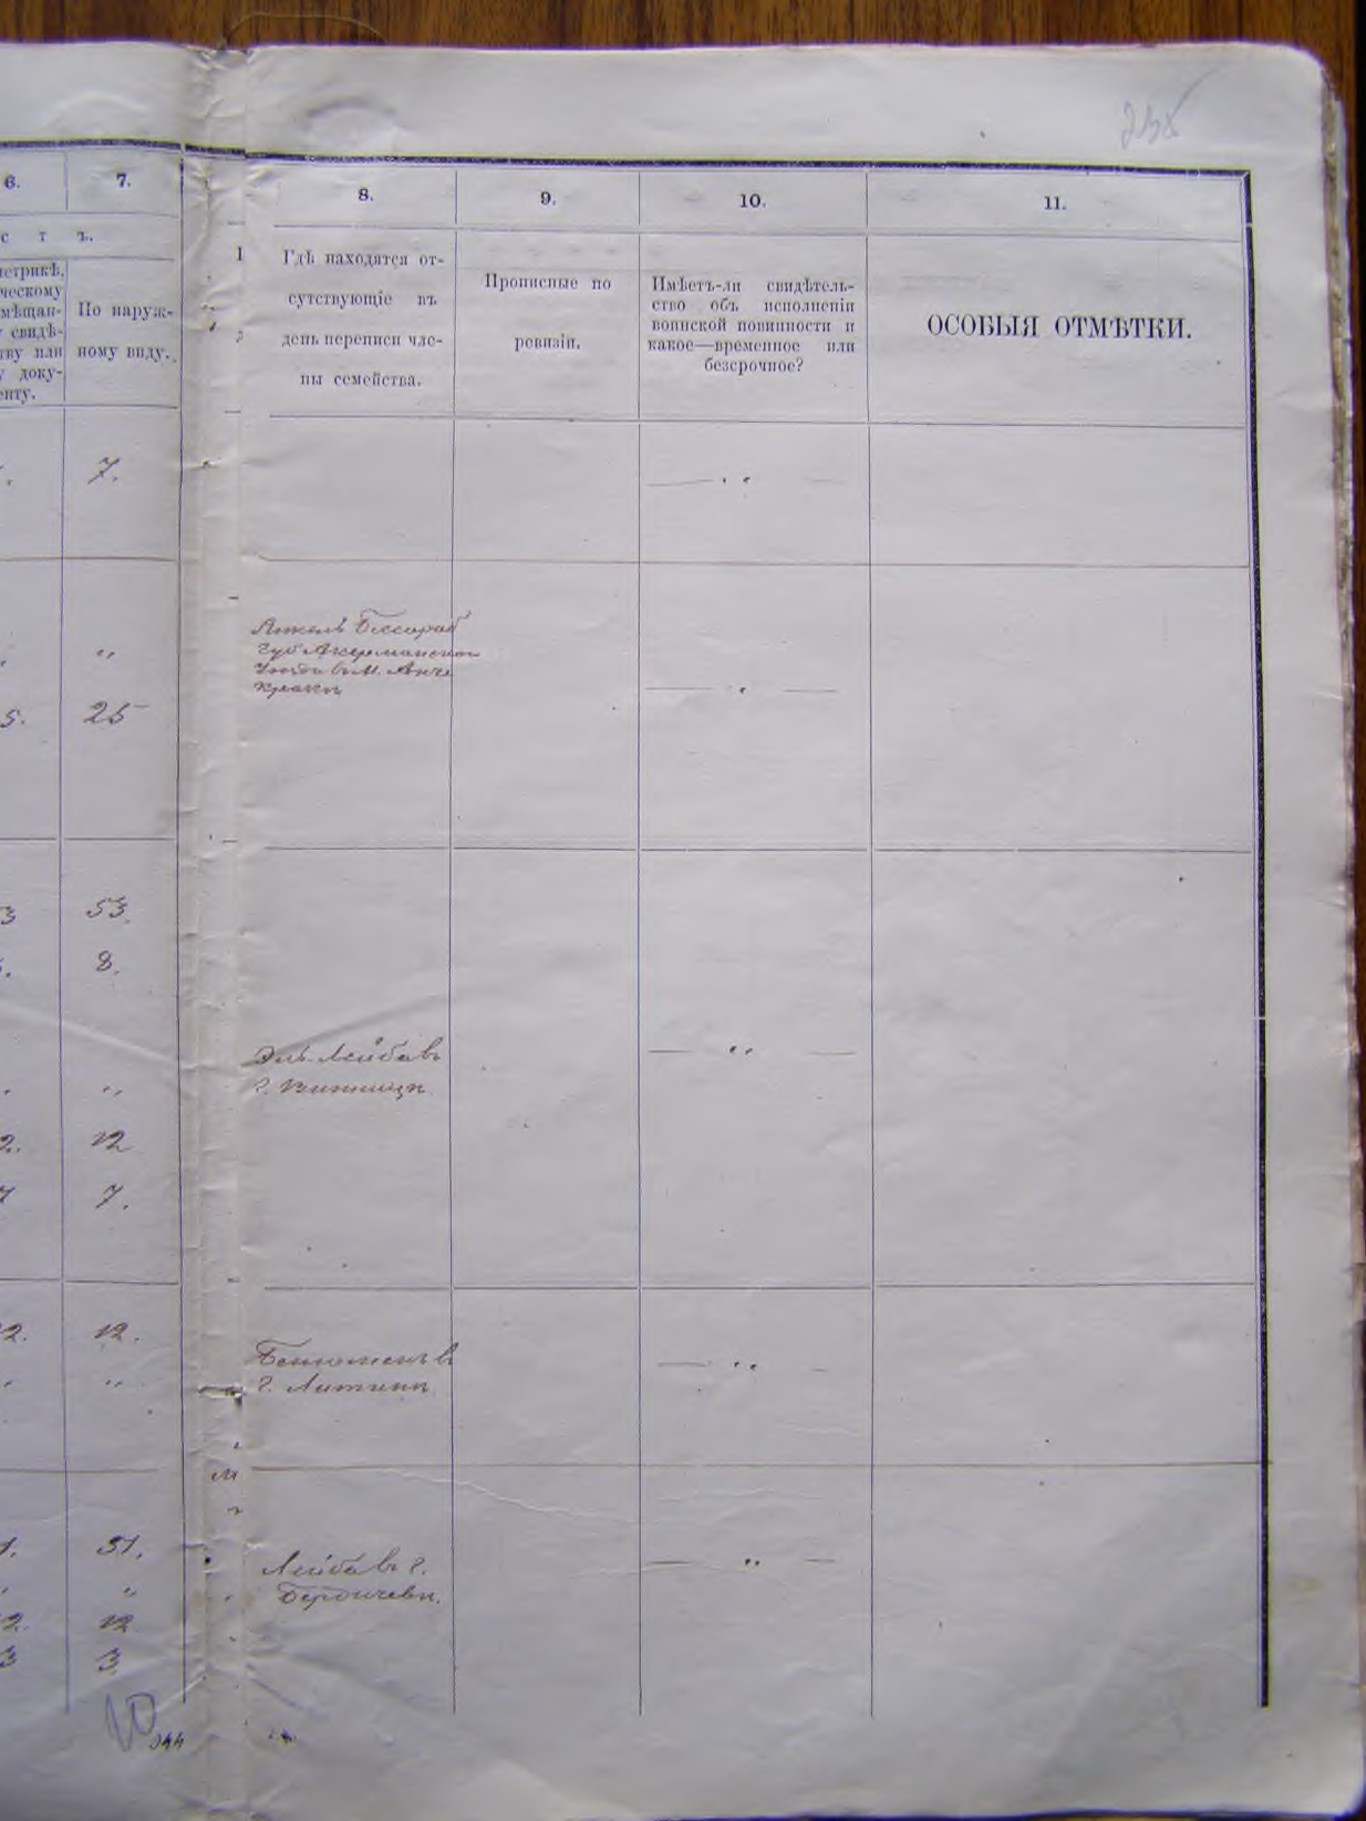 6. 7. 8. 9. 10. 11.
с т ъ.
етрикѣ,
ческому
мѣщан-
свидѣ-
тву или
доку-
енту.
По наруж-
ному виду.
Гдѣ находятся от-
сутствующіе въ
день переписи чле-
ны семейства.
Прописные по
ревизіи.
Имѣетъ-ли свидѣтель-
ство объ исполненіи
воинской повинности и
какое—временное или
безсрочное?
ОСОБЫЯ ОТМѢТКИ.
7.
Бессараб
губ Акерманского
„
5. 25
3 53.
8.
Лейба въ
г. Винницѣ
„
2. 12
7 7.
2. 12.
Бенюменъ в
„ г. Литинѣ
1. 51.
Лейба въ г.
„ Бердичевѣ.
2. 12
3 3
10